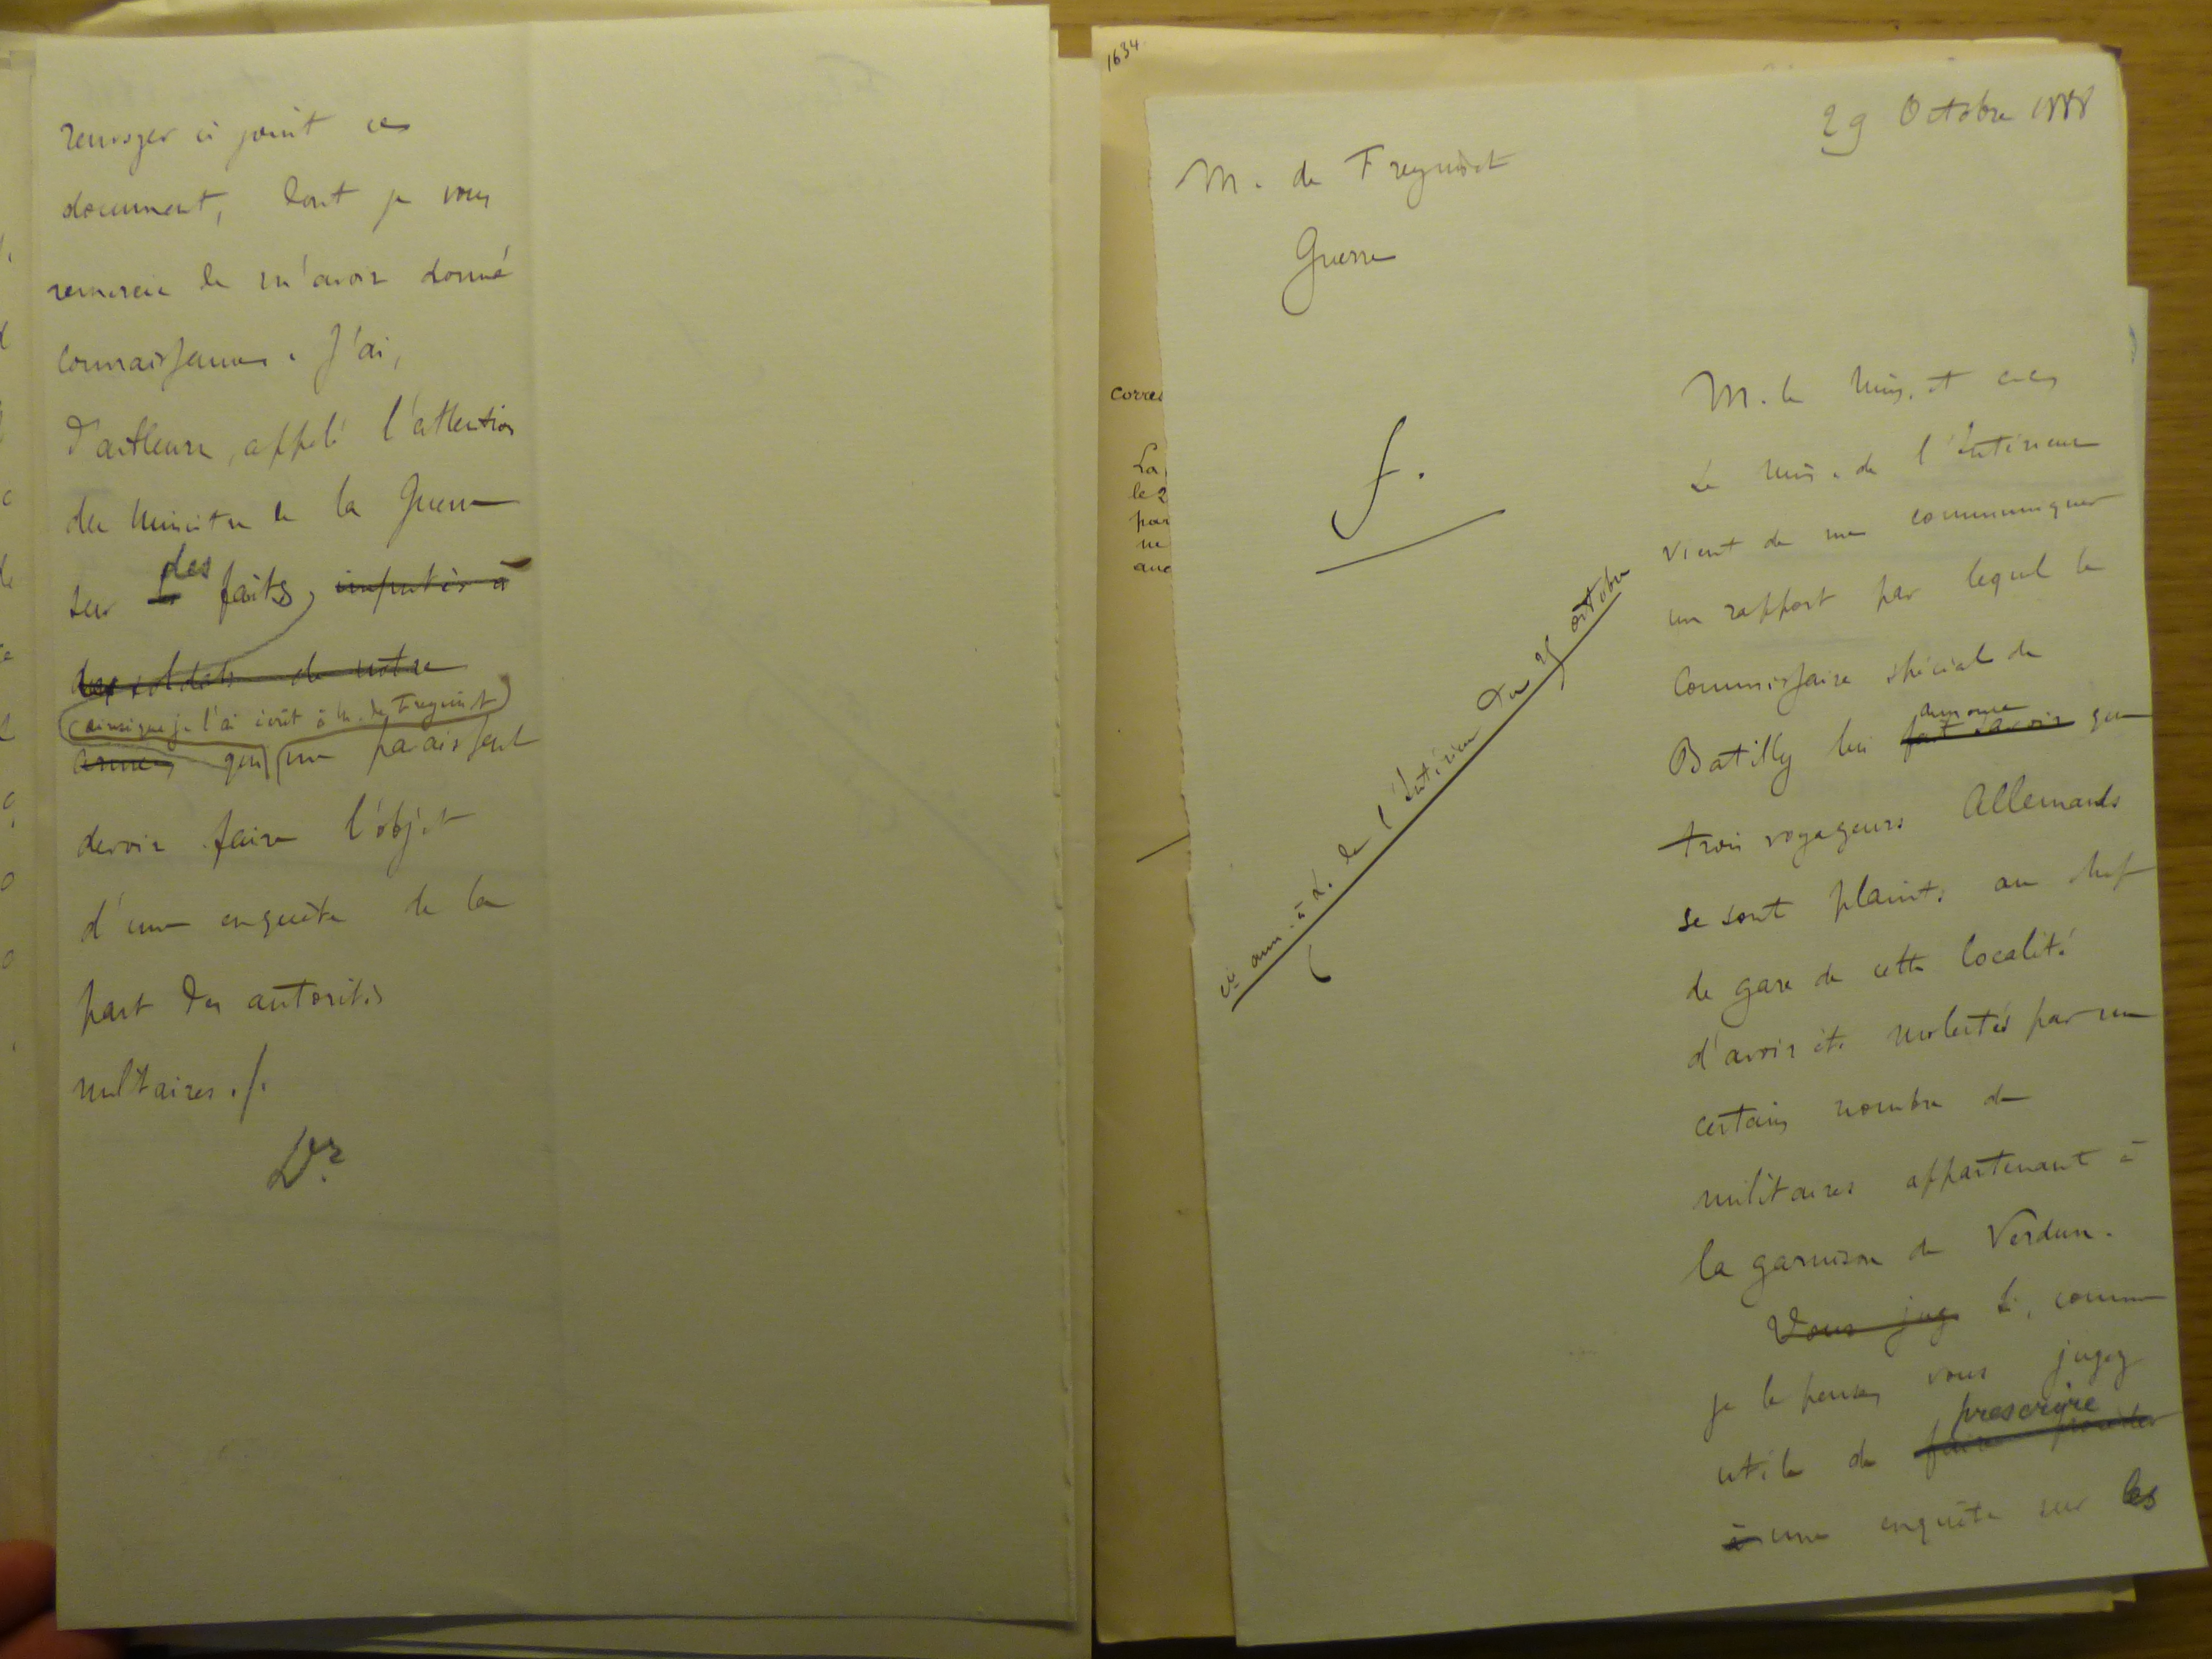 renvoyer ci joint ce
document, dont je vous
remercie de m'avoir donné
connaissance. J'ai,
d'ailleurs, appelé l'attention
du Ministre de la Guerre
sur des faits, imputés à
des soldats de notre
ainsi que je l'ai écrit à M. de Freycinet
armée, qui me paraissent
devoir faire l'objet
d'une enquête de la
part des autorités
militaires ./.
Dr
1634
29 Octobre 1888
M. de Freycinet
Guerre
f.
M. le Min. et cher
Le Min. de l'Intérieur
vient de me communiquer
un rapport par lequel le
Commissaire spécial de
annonce
Batilly lui fait savoir que
trois voyageurs Allemands
se sont plaints au chef
de gare de cette localité
d'avoir été molestés par un
certain nombre de
militaires appartenant à
la garnison de Verdun.
Vous jug Si, comme
je le pense, vous jugez
prescrire
utile de faire procéder
à une enquête sur les
ci ann. à L. de l'Intérieur du 25 octobre
corres
La
le 2
par
ne
auc